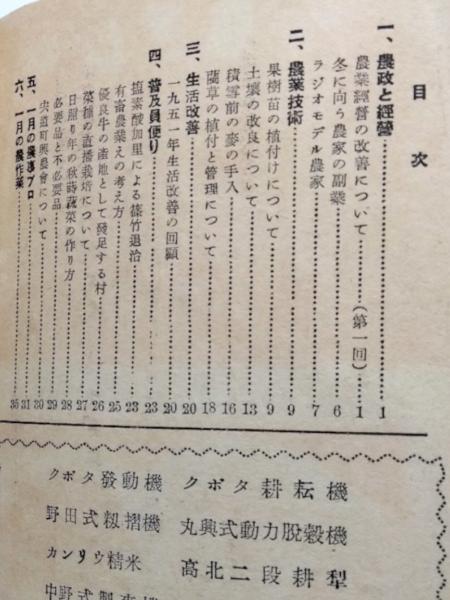 目次
一、農政と經營……1
農業經營の改善について……(第一回)……1
冬に向う農家の副業……6
ラジオモデル農家……7
二、農業技術……9
果樹苗の植付けについて……9
土壤の改良について……13
積雪前の麥の手入……16
藺草の植付と管理について……18
三、生活改善……20
一九五一年生活改善の回顧……20
四、普及員便り……23
鹽素酸加里による篠竹退治……23
有畜農業えの考え方……25
優良牛の產地として發足する村……26
菜種の直播栽培について……27
日照り年の秋蒔蔬菜の作り方……28
必要品と不必要品……29
宍道町興農會について……30
五、一月の農事プロ……31
六、一月の農作業……35
クボタ發動機 クボタ耕耘機
野田式籾摺機 丸興式動力脫穀機
カンリウ精米 高北二段耕犁
中野式製